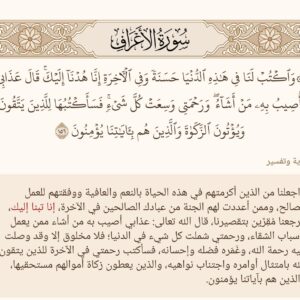 سُورَةُ الأَعْرَافِ
وَٱكْتُبْ لَنَا فِى هَٰذِهِ ٱلدُّنْيَا حَسَنَةً وَفِى ٱلْءَاخِرَةِ إِنَّا هُدْنَآ إِلَيْكَ ۚ قَالَ عَذَابِىٓ
أُصِيبُ بِهِۦ مَنْ أَشَآءُ ۖ وَرَحْمَتِى وَسِعَتْ كُلَّ شَىْءٍ ۚ فَسَأَكْتُبُهَا لِلَّذِينَ يَتَّقُونَ
وَيُؤْتُونَ ٱلزَّكَوٰةَ وَٱلَّذِينَ هُم بِـَٔايَٰتِنَا يُؤْمِنُونَ ١٥٦
ية وتفسير
اجعلنا من الذين أكرمتهم في هذه الحياة بالنعم والعافية ووفقتهم للعمل
صالح، وممن أعددت لهم الجنة من عبادك الصالحين في الآخرة، إنا تبنا إليك،
رجعنا مُقِرّين بتقصيرنا، قال الله تعالى: عذابي أصيب به من أشاء ممن يعمل
سباب الشقاء، ورحمتي شملت كل شيء في الدنيا؛ فلا مخلوق إلا وقد وصلت
يه رحمة الله، وغمره فضله وإحسانه، فسأكتب رحمتي في الآخرة للذين يتقون
ه بامتثال أوامره واجتناب نواهيه، والذين يعطون زكاة أموالهم مستحقيها،
الذين هم بآياتنا يؤمنون.